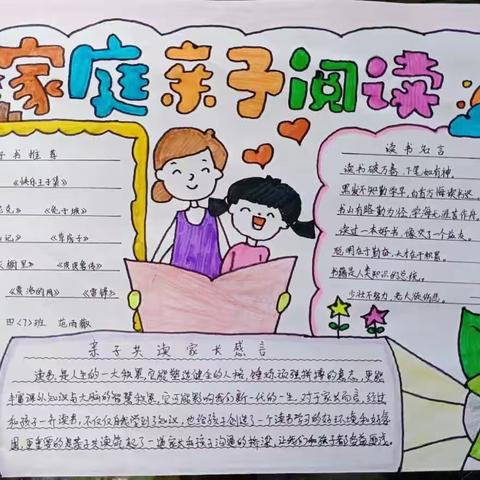 家庭亲子阅读
好书推荐
《快乐王子集》
《兔子坡》
《草房子》
《窗边的小豆豆》
四(7)班 范雨薇
读书名言
读书破万卷，下笔如有神。
黑发不知勤学早，白首方悔读书迟。
书山有路勤为径，学海无涯苦作舟。
读过一本好书，像交了一个益友。
聪明在于勤奋，天才在于积累。
书籍是人类知识的总统。
少壮不努力，老大徒伤悲。
亲子共读家长感言
读书，是人生的一大教养，它能塑造健全的人格，锤炼顽强拼搏的意志，更能
丰富课外知识与大脑的智慧教养，它可能影响我们新一代的一生。对于家长而言，经过
和孩子一齐读书，不仅仅自我学到了知识，也给孩子创造了一个读书学习的好环境和好氛
围，更重要的是亲子共读筑起了一道家长和孩子沟通的桥梁，让我们和孩子都受益匪浅。